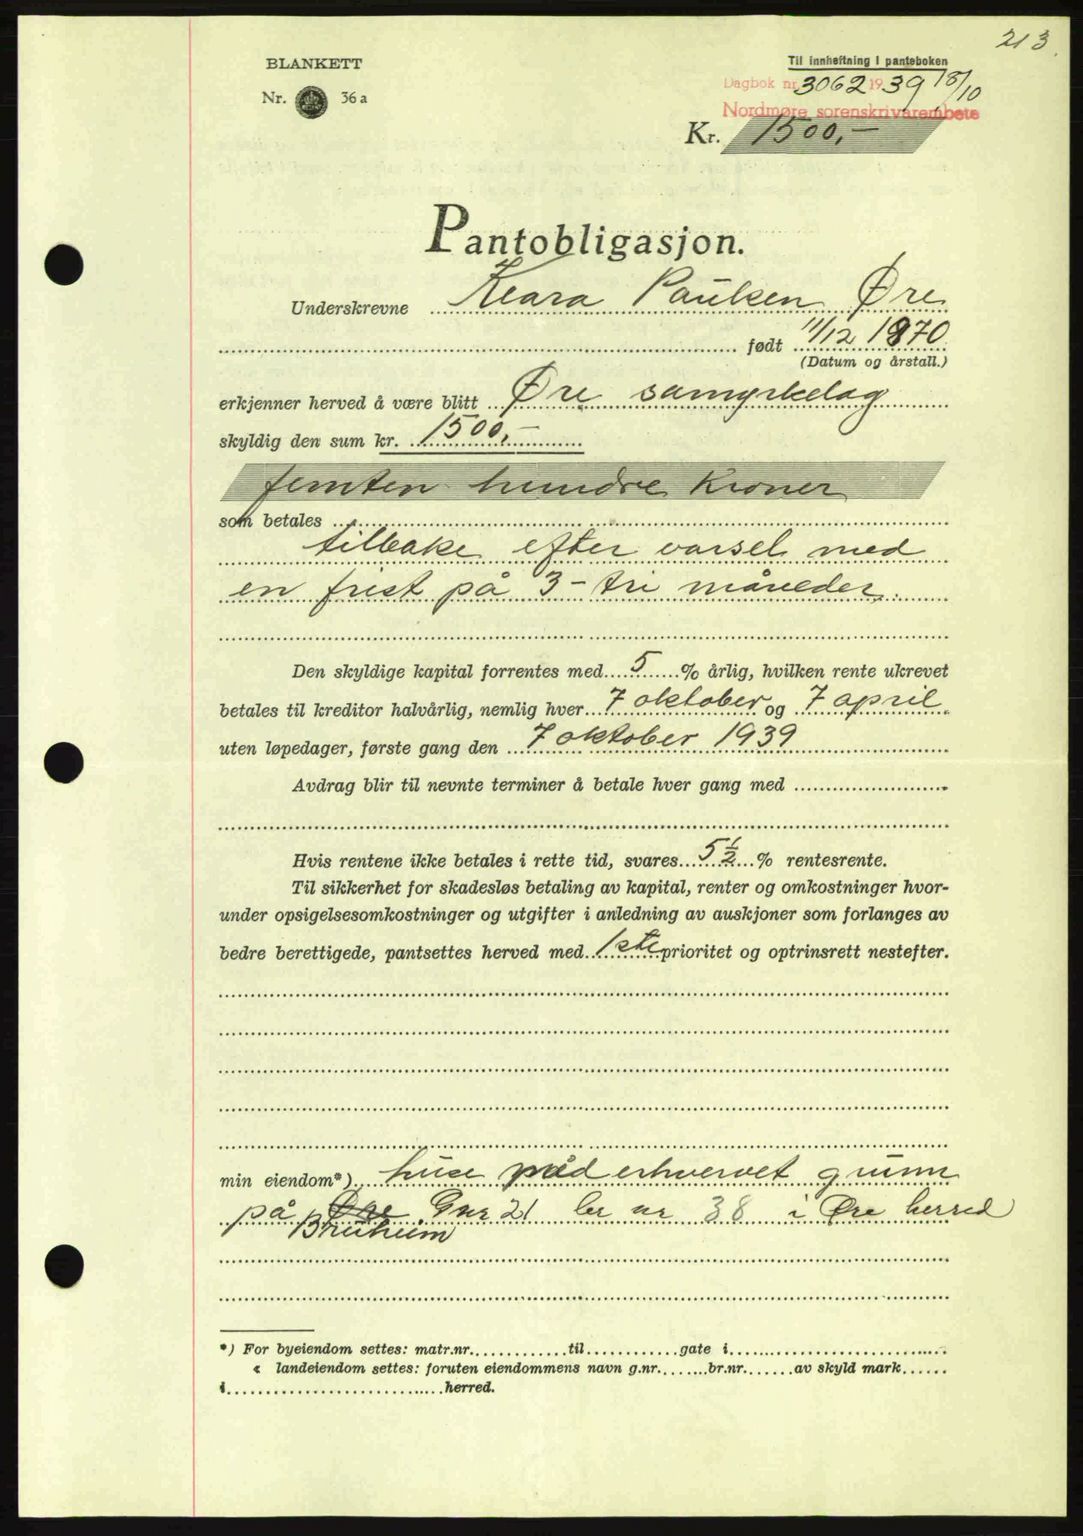 213.
BLANKETT
Nr. 36 a
Til innheftning i panteboken
Dagbok nr. 3062 1939 18/10
Nordmøre sorenskrivarembete
Kr. 1500,-
Pantobligasjon.
Underskrevne Klara Paulsen Øre
født 11/12 1870
(Datum og årstall.)
erkjenner herved å være blitt Øre samyrkelag
skyldig den sum kr. 1500,-
femten hundre Kroner
som betales
tilbake efter varsel med
en frist på 3 - tri måneder.
Den skyldige kapital forrentes med 5 % årlig, hvilken rente ukrevet
betales til kreditor halvårlig, nemlig hver 7 oktober og 7 april
uten løpedager, første gang den 7 oktober 1939
Avdrag blir til nevnte terminer å betale hver gang med
Hvis rentene ikke betales i rette tid, svares 5 1/2 % rentesrente.
Til sikkerhet for skadesløs betaling av kapital, renter og omkostninger hvor-
under opsigelsesomkostninger og utgifter i anledning av auskjoner som forlanges av
bedre berettigede, pantsettes herved med 1ste prioritet og optrinsrett nestefter.
min eiendom*) huse på erhvervet grunn
på Øre Gnr 21 br nr 38 i Øre herred
Bruheim
*) For byeiendom settes: matr.nr. til gate i
« landeiendom settes: foruten eiendommens navn g.nr. br.nr. av skyld mark
i herred.